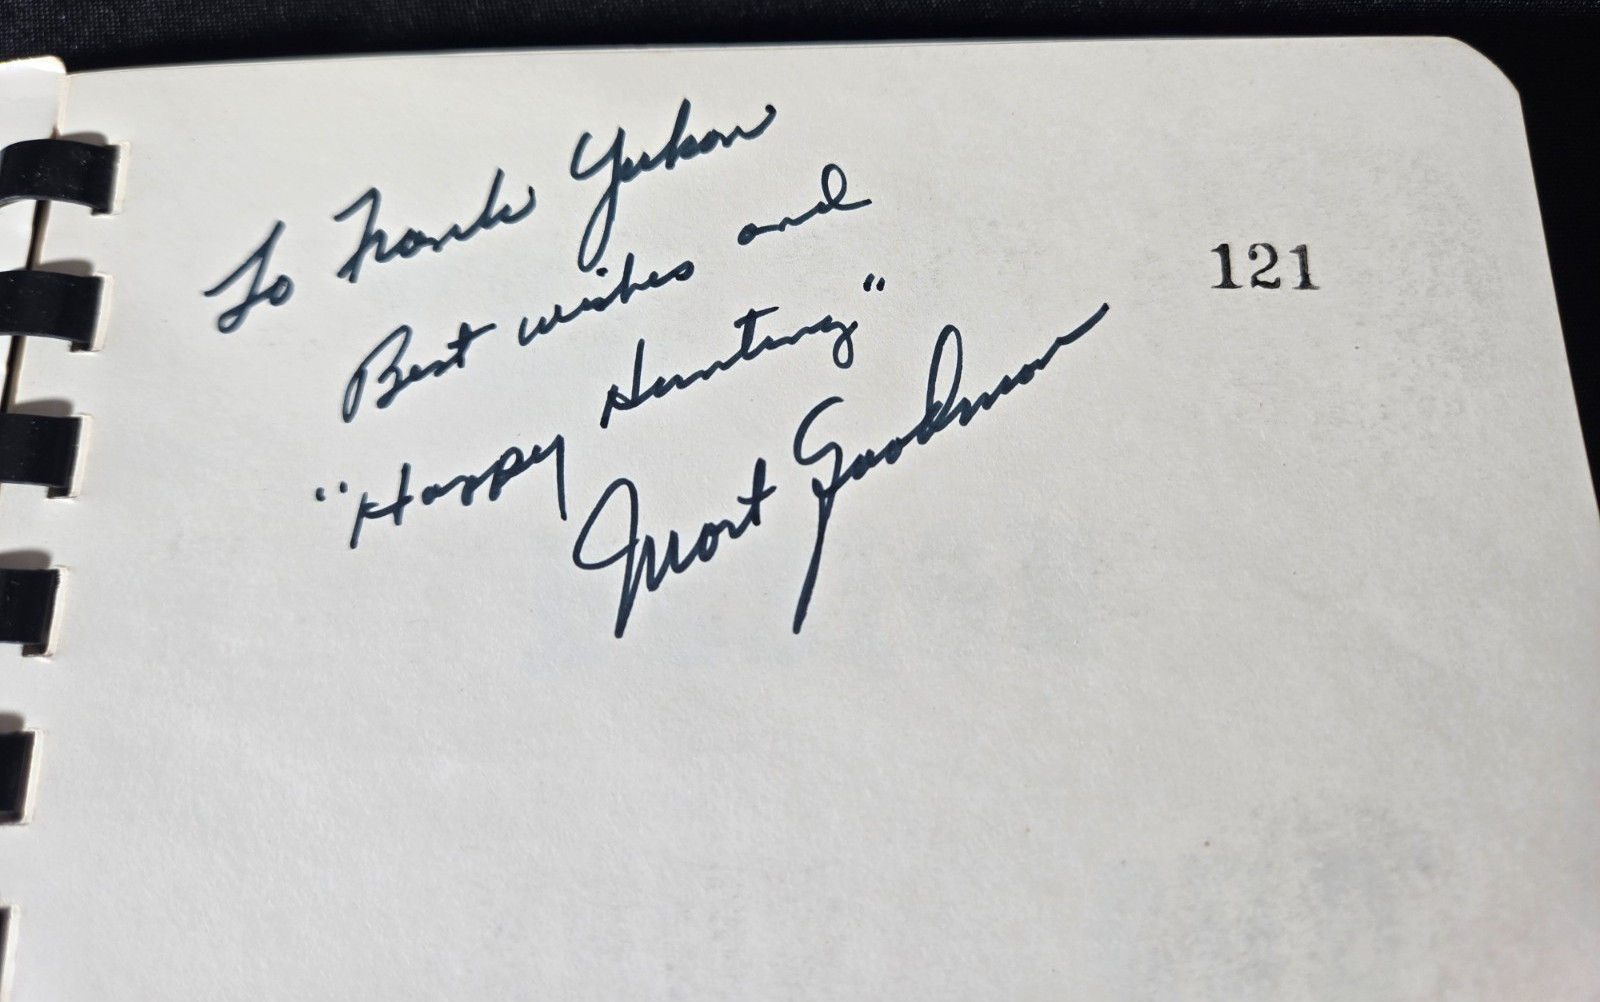 To Frank Yukon
Best wishes and
"Happy Hunting"
Mort Goodman
121